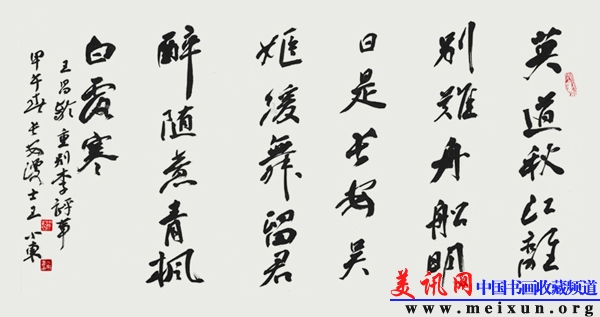 莫道秋江離
别難舟船明
日是长安吴
姬缓舞留君
醉随意青枫
白露寒
王昌龄重别李評事
甲午春长安漫士王小東
美讯网 中国书画收藏频道
www.meixun.org